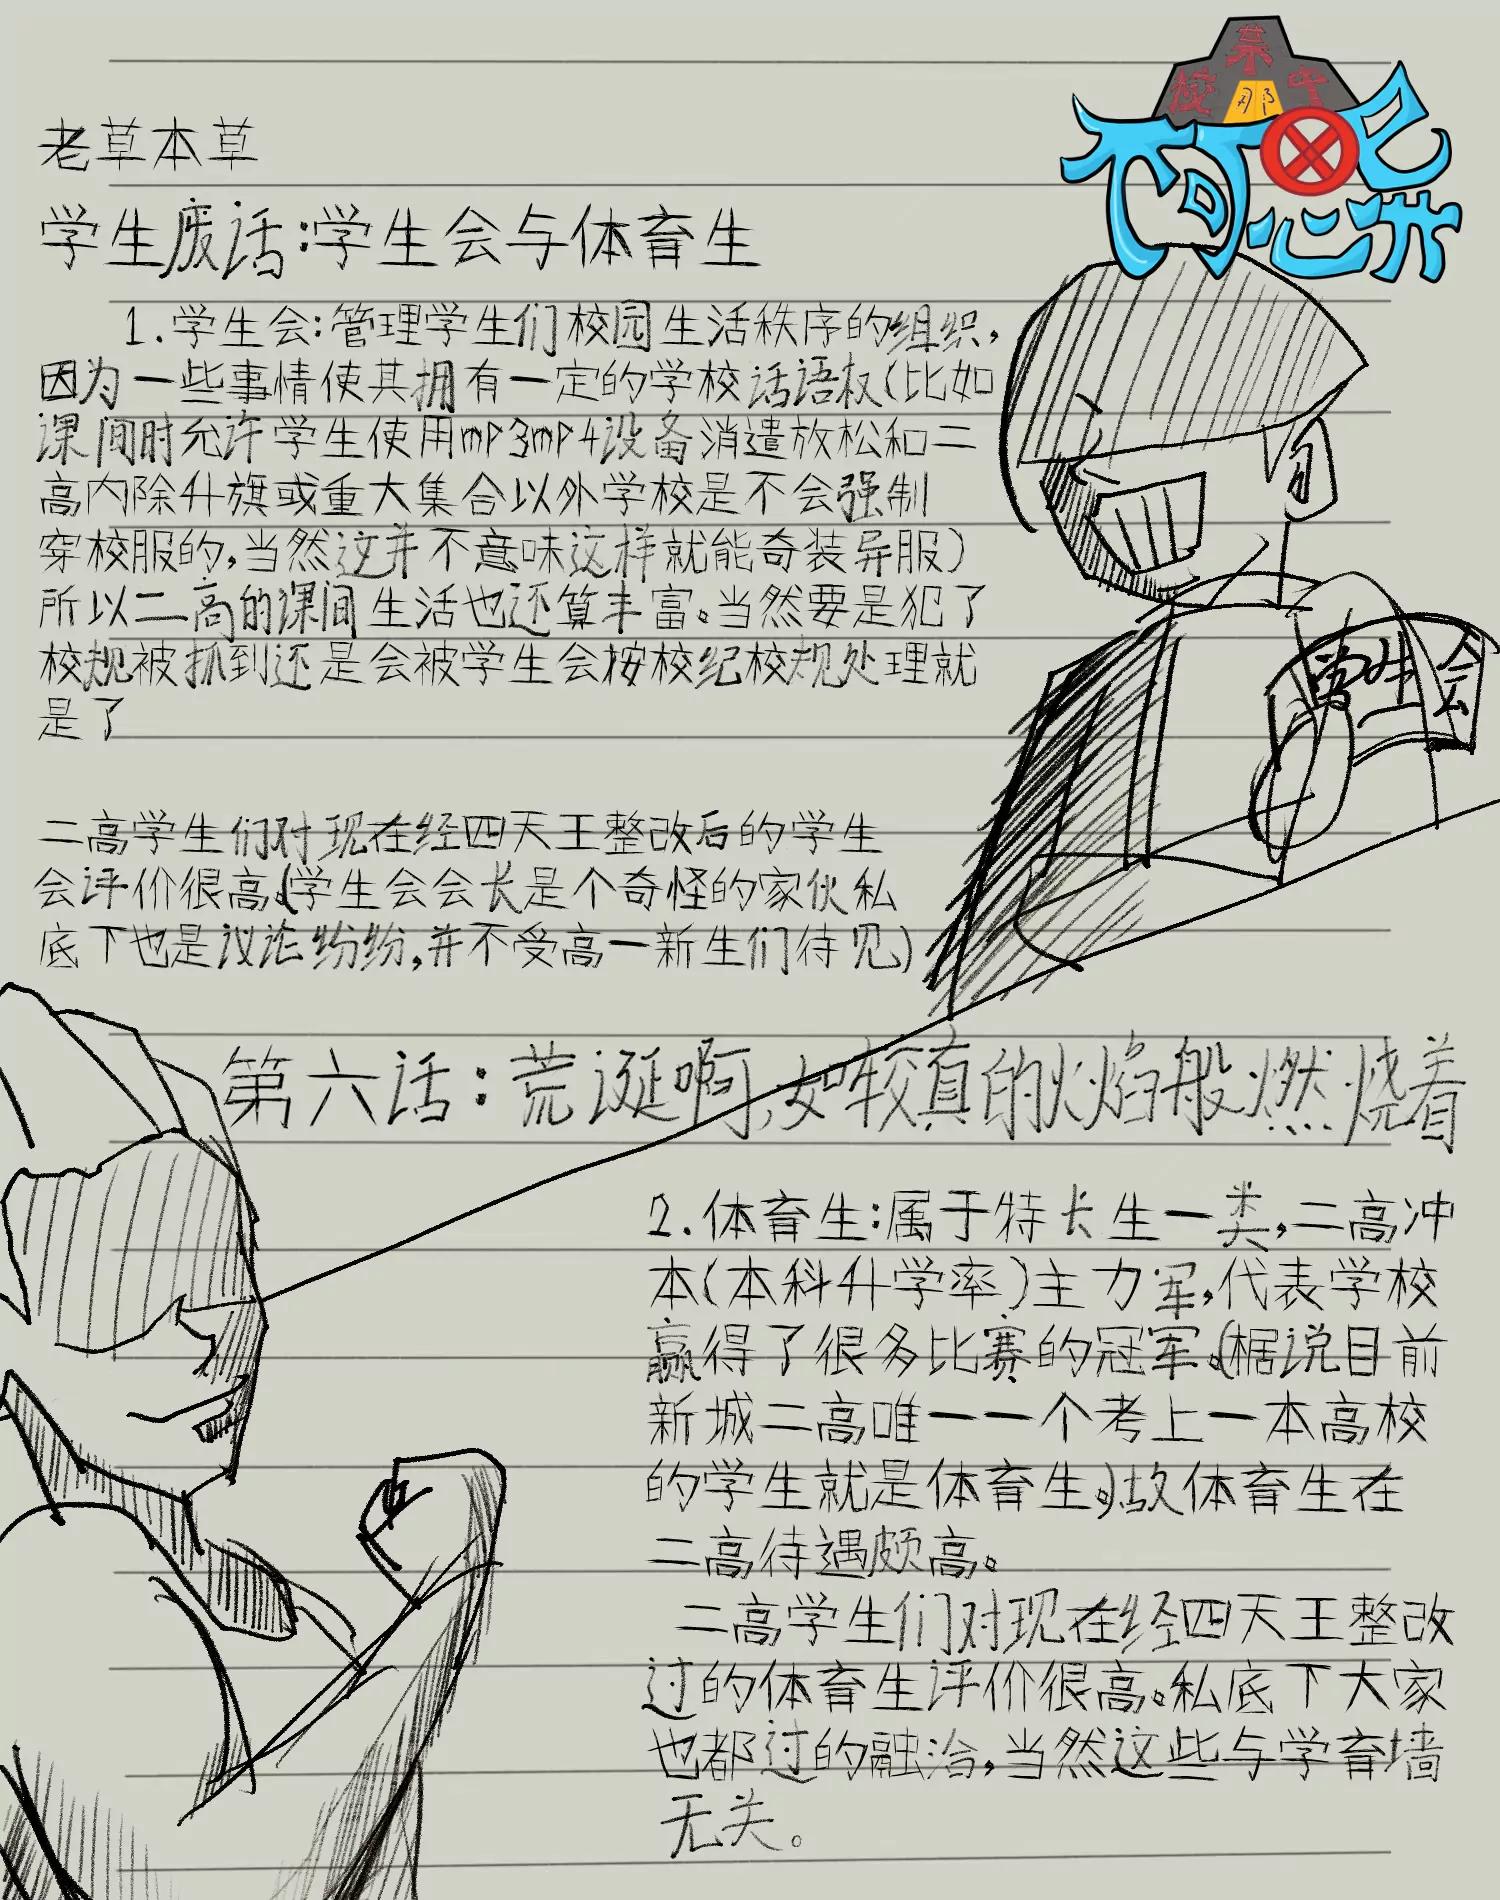 老草本草
学生废话:学生会与体育生
1.学生会:管理学生们校园生活秩序的组织,
因为一些事情使其拥有一定的学校话语权(比如
课间时允许学生使用mp3mp4设备消遣放松和二
高内除升旗或重大集会以外学校是不会强制
穿校服的,当然这并不意味这样就能奇装异服)
所以二高的课间生活也还算丰富。当然要是犯了
校规被抓到还是会被学生会按校纪校规处理就
是了
学生会
二高学生们对现在经四天王整改后的学生
会评价很高。(学生会会长是个奇怪的家伙私
底下也是议论纷纷,并不受高一新生们待见)
第六话:荒诞啊,如较真的火焰般燃烧着
2.体育生:属于特长生一类,二高冲
本(本科升学率)主力军,代表学校
赢得了很多比赛的冠军。(据说目前
新城二高唯一一个考上一本高校
的学生就是体育生。)故体育生在
二高待遇颇高。
二高学生们对现在经四天王整改
过的体育生评价很高。私底下大家
也都过的融洽,当然这些与学育墙
无关。